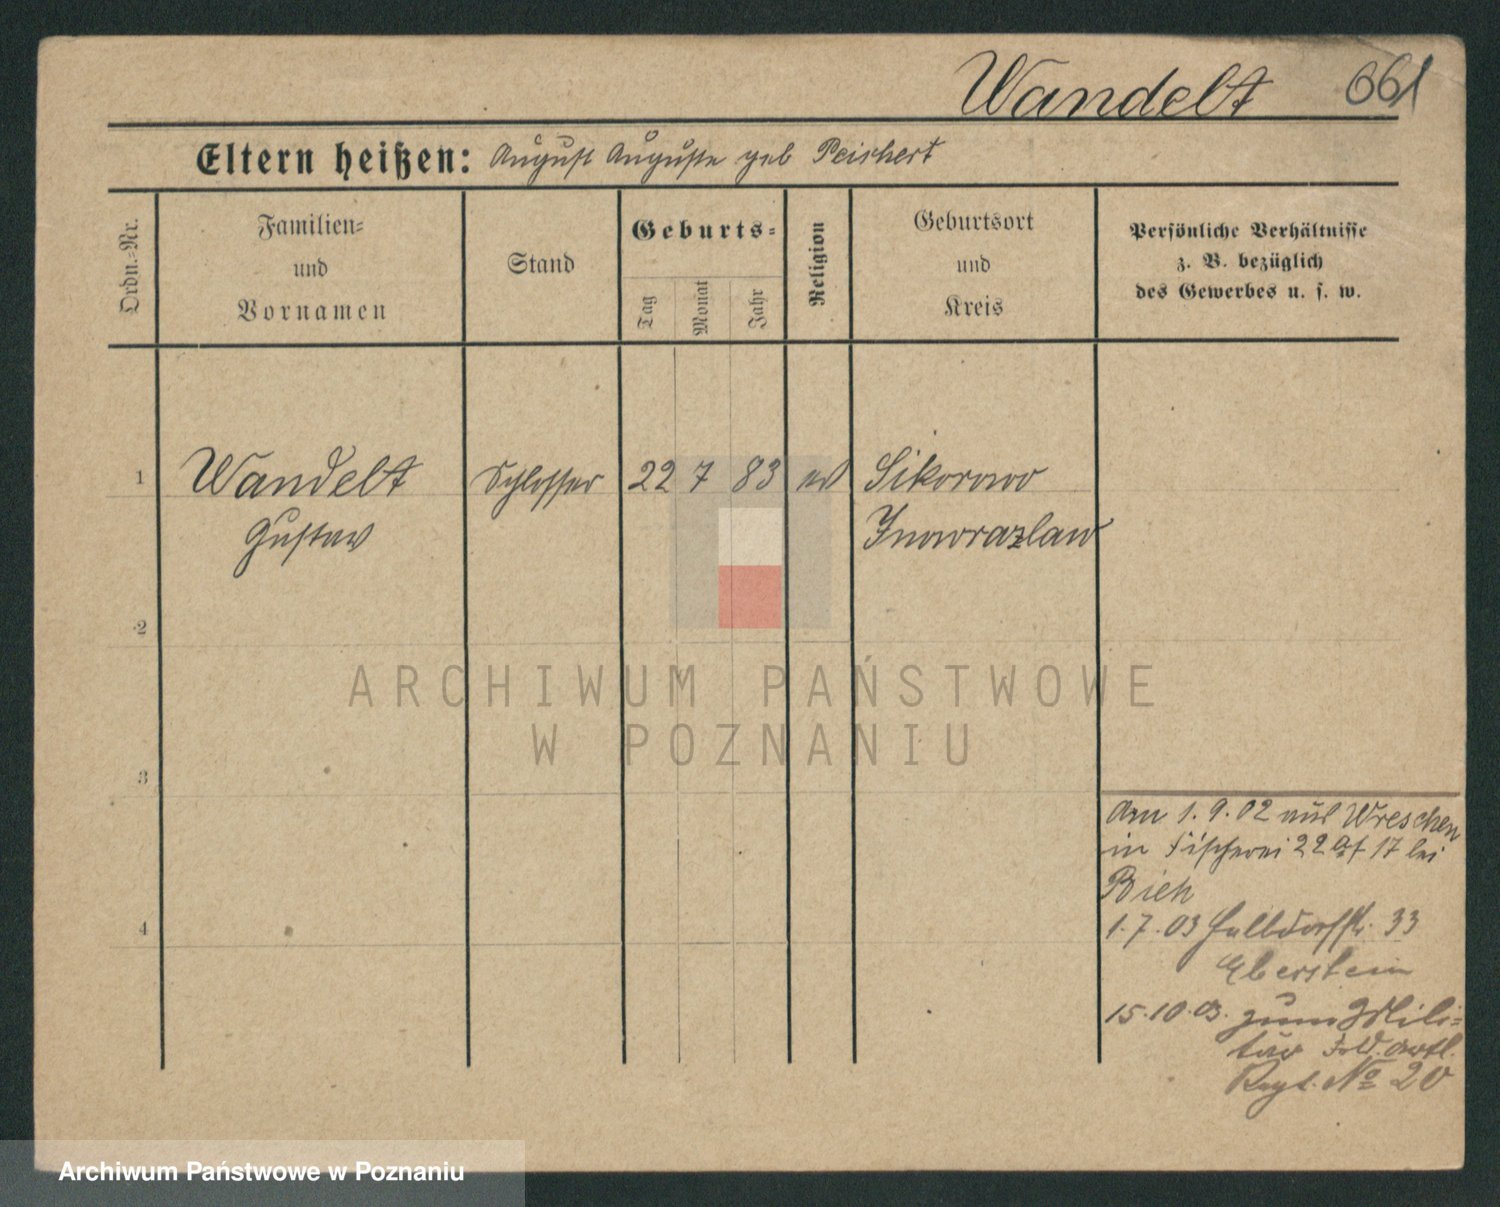 Wandelt 661
Eltern heißen: August Auguste geb Peichert
Ordn.-Nr.
Familien-
und
Vornamen
Stand
Geburts-
Tag
Monat
Jahr
Religion
Geburtsort
und
Kreis
Persönliche Verhältnisse
z. B. bezüglich
des Gewerbes u. s. w.
1 Wandelt Schlosser 22 7 83 ev Sikorowo
Gustav Inowrazlaw
2
ARCHIWUM PAŃSTWOWE
W POZNANIU
3
Am 1.9.02 aus Wreschen
in Fischerei 22 17 bei
4
1.7.03 Halldorfstr. 33
Eberstein
15.10.03. zum Mili-
tär Feld. Artl.
Regt. No 20
Archiwum Państwowe w Poznaniu